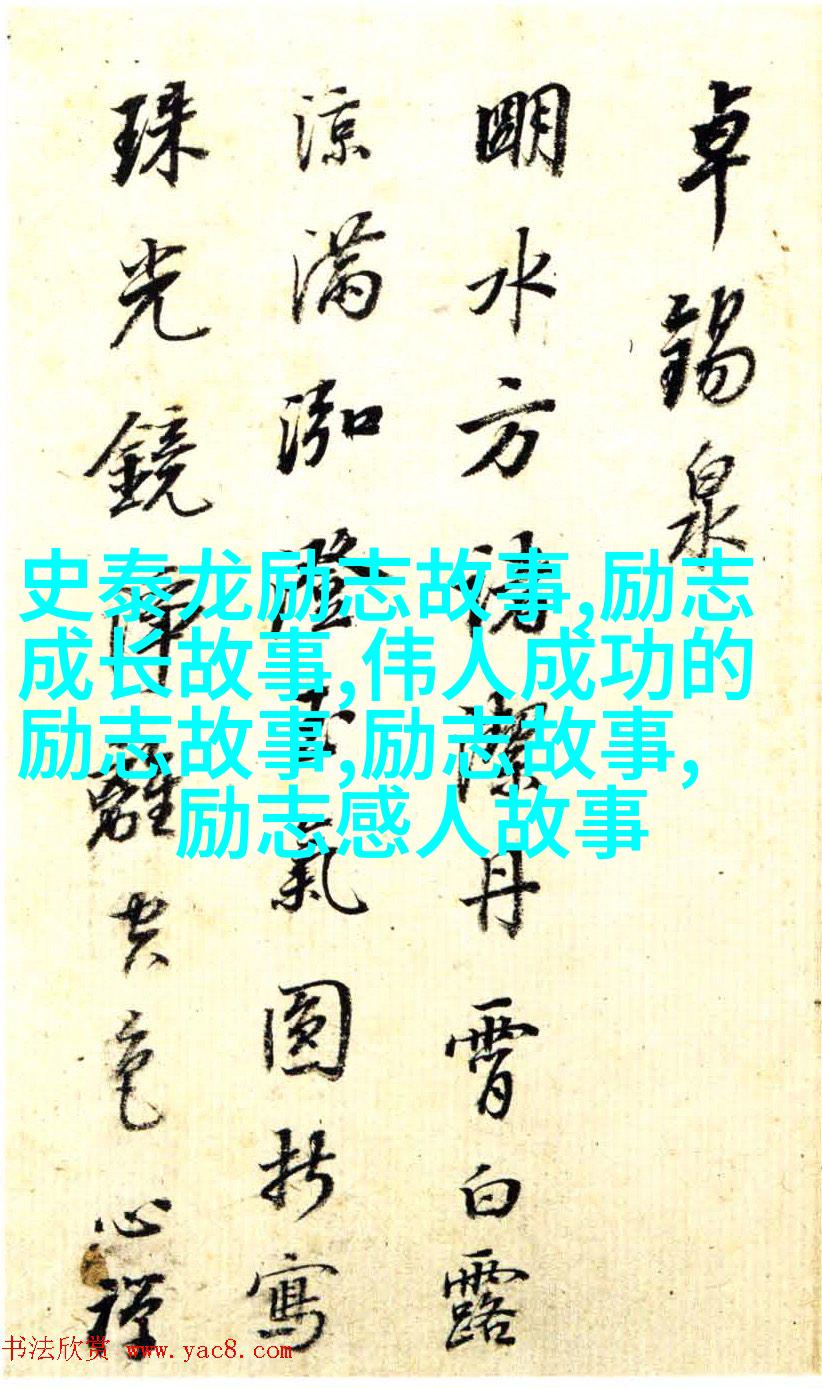 卓錫泉
明水方諸潔丹霄白露
涼滿泓澄玉氣圓折寫
珠光鏡離空色心禪
史泰龙励志故事,励志
成长故事,伟人成功的
励志故事,励志故事,
励志感人故事
书法欣赏 www.yac8.com